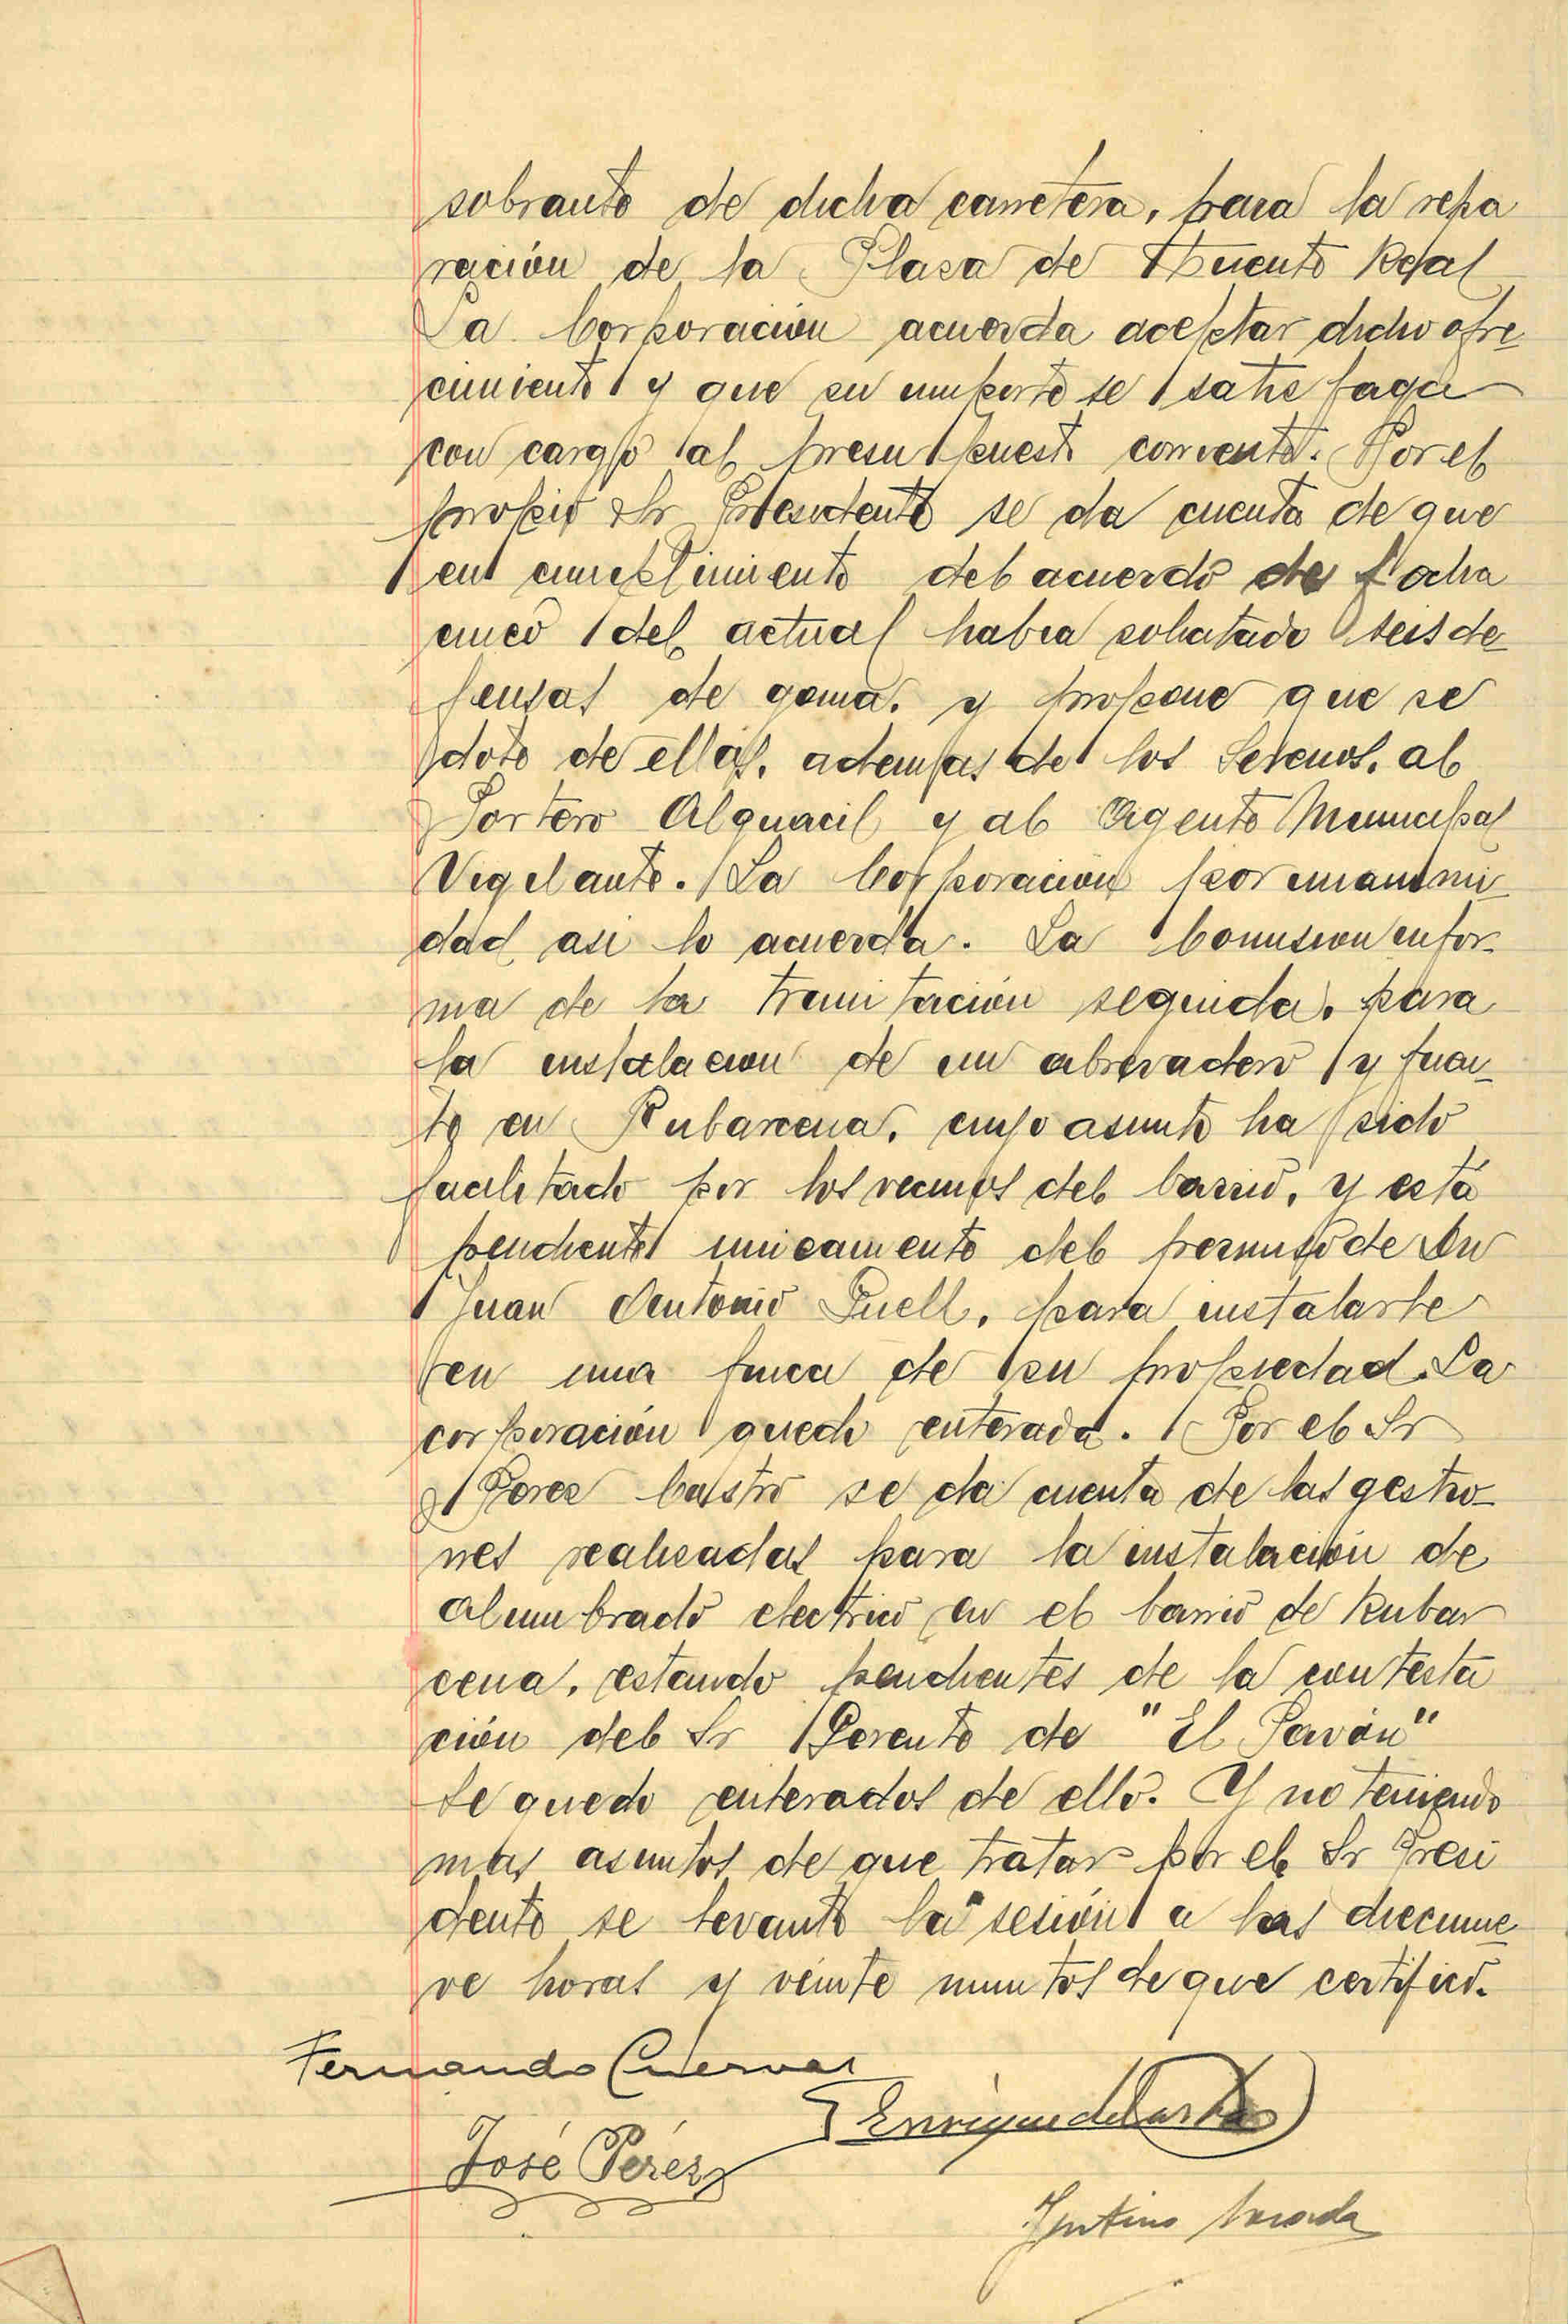 sobrante de dicha carretera, para la repa
ración de la Plaza de Puente Real
La Corporación acuerda aceptar dicho ofre-
cimiento y que su importe se satisfaga
con cargo al presupuesto corriente. Por el
propio Sr Presidente se da cuenta de que
en cumplimiento del acuerdo de fecha
cinco del actual habia solicitado seis de-
fensas de goma, y propone que se
dote de ellas, ademas de los Serenos, al
Portero Alguacil y al Agente Municipal
Vigilante. La Corporación por unanimi-
dad asi lo acuerda. La Comision infor-
ma de la tramitación seguida, para
la instalacion de un abrevadero y fuen-
te en Rubarcena, cuyo asunto ha sido
facilitado por los vecinos del barrio, y está
pendiente unicamente del permiso de Dn
Juan Antonio Guell, para instalarle
en una finca de su propiedad. La
corporación quedo enterada. Por el Sr
Perez Castro se da cuenta de las gestio-
nes realizadas para la instalación de
alumbrado electrico en el barrio de Rubar
cena, estando pendientes de la contesta
ción del Sr Gerente de "El Pavón"
se quedo enterados de ello. Y no teniendo
mas asuntos de que tratar por el Sr Presi
dente se levanto la sesión a las diecinue
ve horas y veinte minutos de que certifico.
Fernando Cuevas
Enrique del
José Pérez